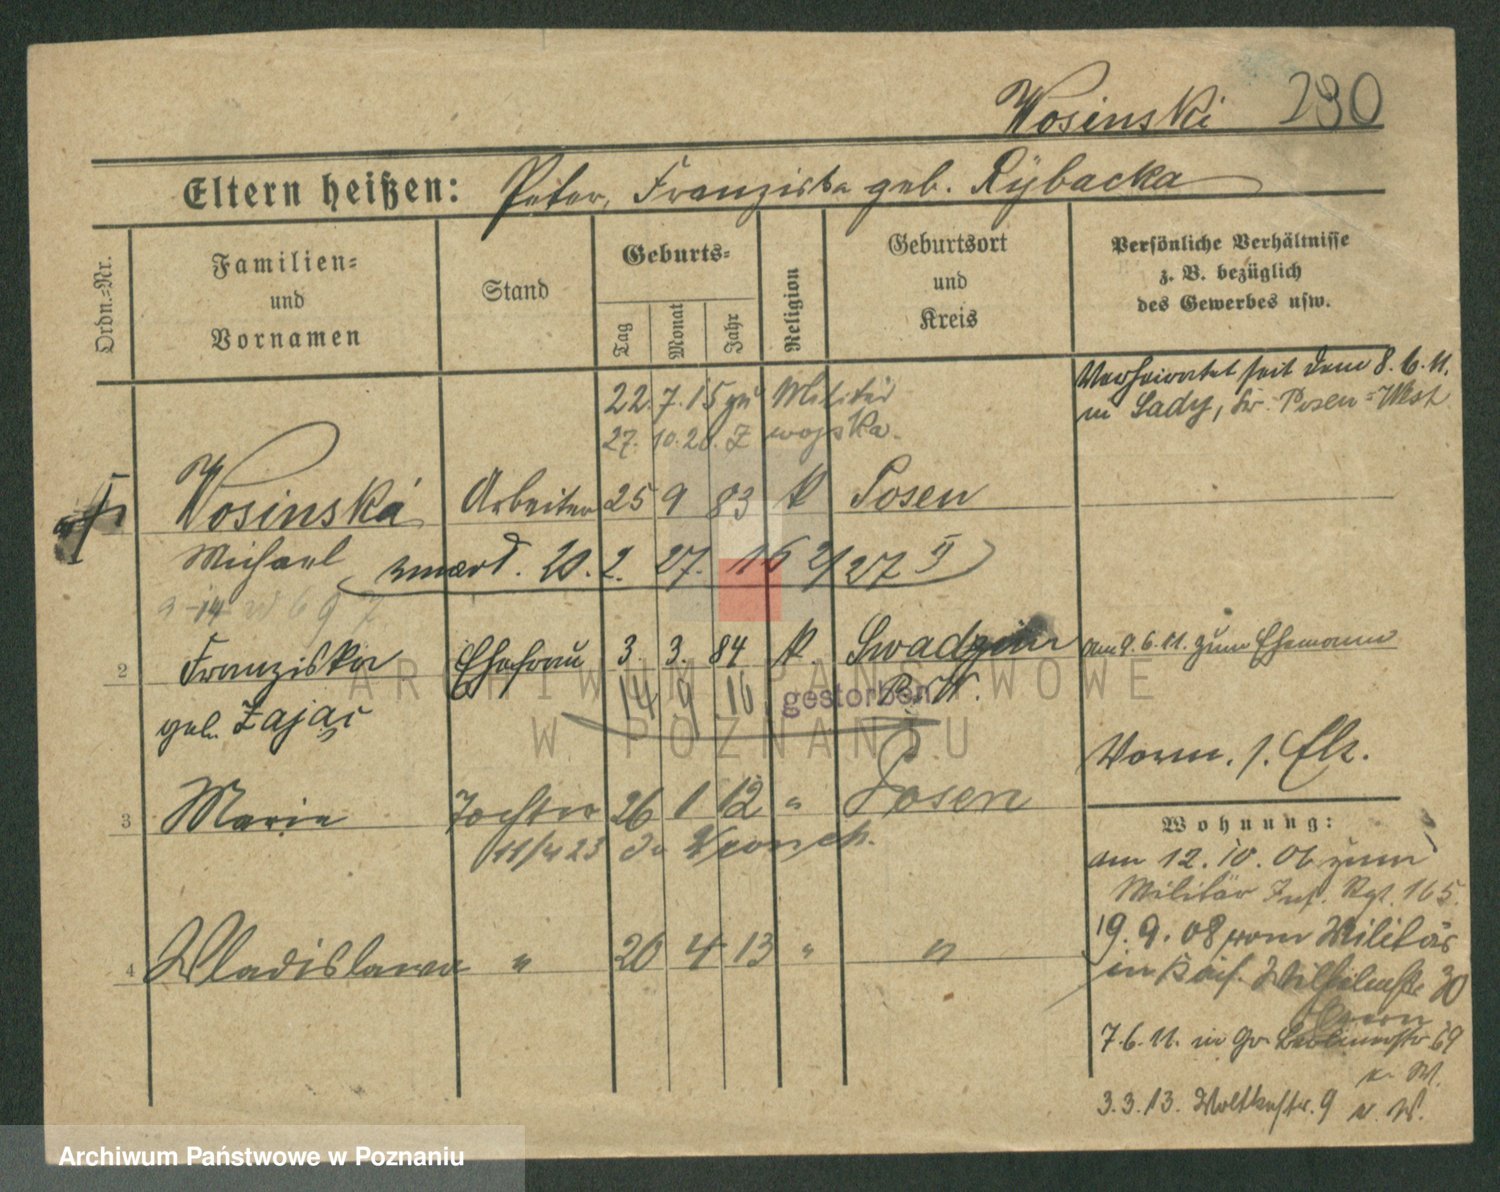 Wosinski 230
Eltern heißen: Peter, Franziska geb. Rybacka
Ordn.=Nr.
Familien=
und
Vornamen
Stand
Geburts=
Tag
Monat
Jahr
Religion
Geburtsort
und
Kreis
Persönliche Verhältnisse
z. B. bezüglich
des Gewerbes usw.
22. 7. 15 zu Militär
27. 10. 20. z wojska.
Verheiratet seit dem 8.6.11.
in Sady, Kr. Posen=West
Wosinski Arbeiter 25 9 83 k Posen
Michael zmarł. 20. 2. 27. 16 2/27 II
2 Franziska Ehefrau 3. 3. 84 k. Swadzim am 9.6.11. zum Ehemann
14 9 16 gestorben P. W.
geb. Zając
Vorm. s. Elt.
3 Marie Tochter 26 1 12 " Posen
4 Wladislawa " 20 4 13 " "
Wohnung:
am 12. 10. 06 zum
Militär Inf. Rgt. 165.
19. 9. 08 vom Militär
in 30
7. 6. 11. in Gr. 69
3. 3. 13. Moltkestr. 9 v. W.
ARCHIWUM PAŃSTWOWE
W POZNANIU
Archiwum Państwowe w Poznaniu